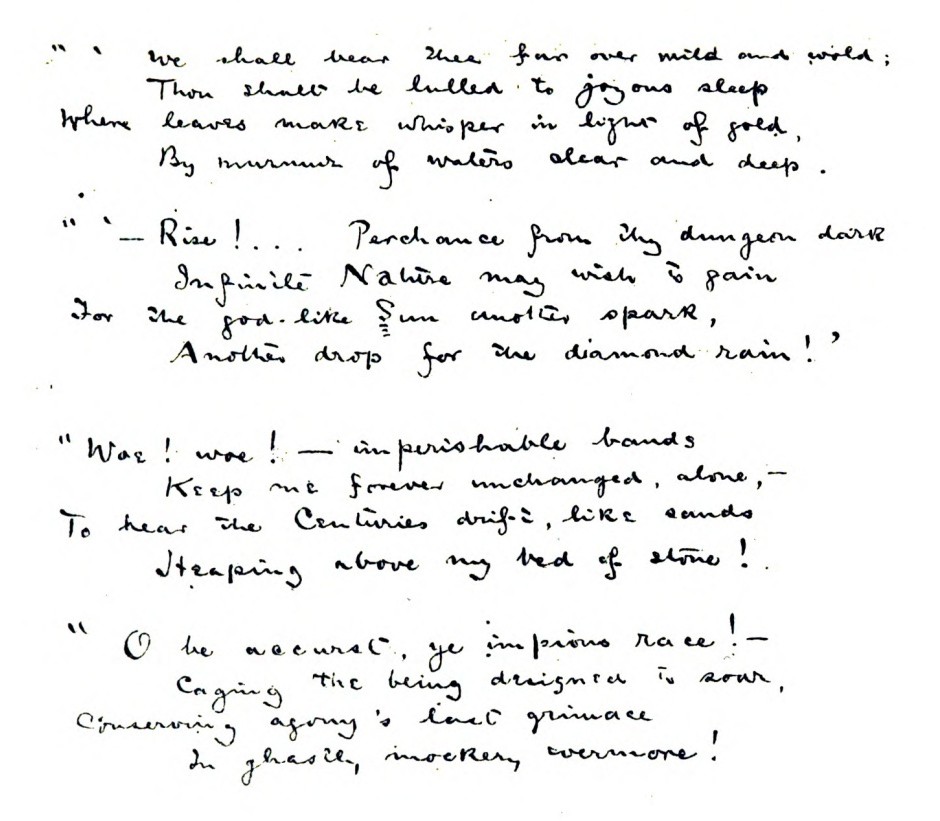 " ' we shall bear thee far over mild and wold;
Thou shalt be lulled to joyous sleep
Where leaves make whisper in light of gold,
By murmur of waters clear and deep.
" ' — Rise!... Perchance from thy dungeon dark
Infinite Nature may wish to gain
For the god-like Sun another spark,
Another drop for the diamond rain!'
"Woe! woe! — imperishable bands
Keep me forever unchanged, alone,—
To hear the Centuries drift, like sands
Heaping above my bed of stone!
" O be accurst, ye impious race!—
Caging the being designed to soar,
Conserving agony's last grimace
In ghastly mockery evermore!